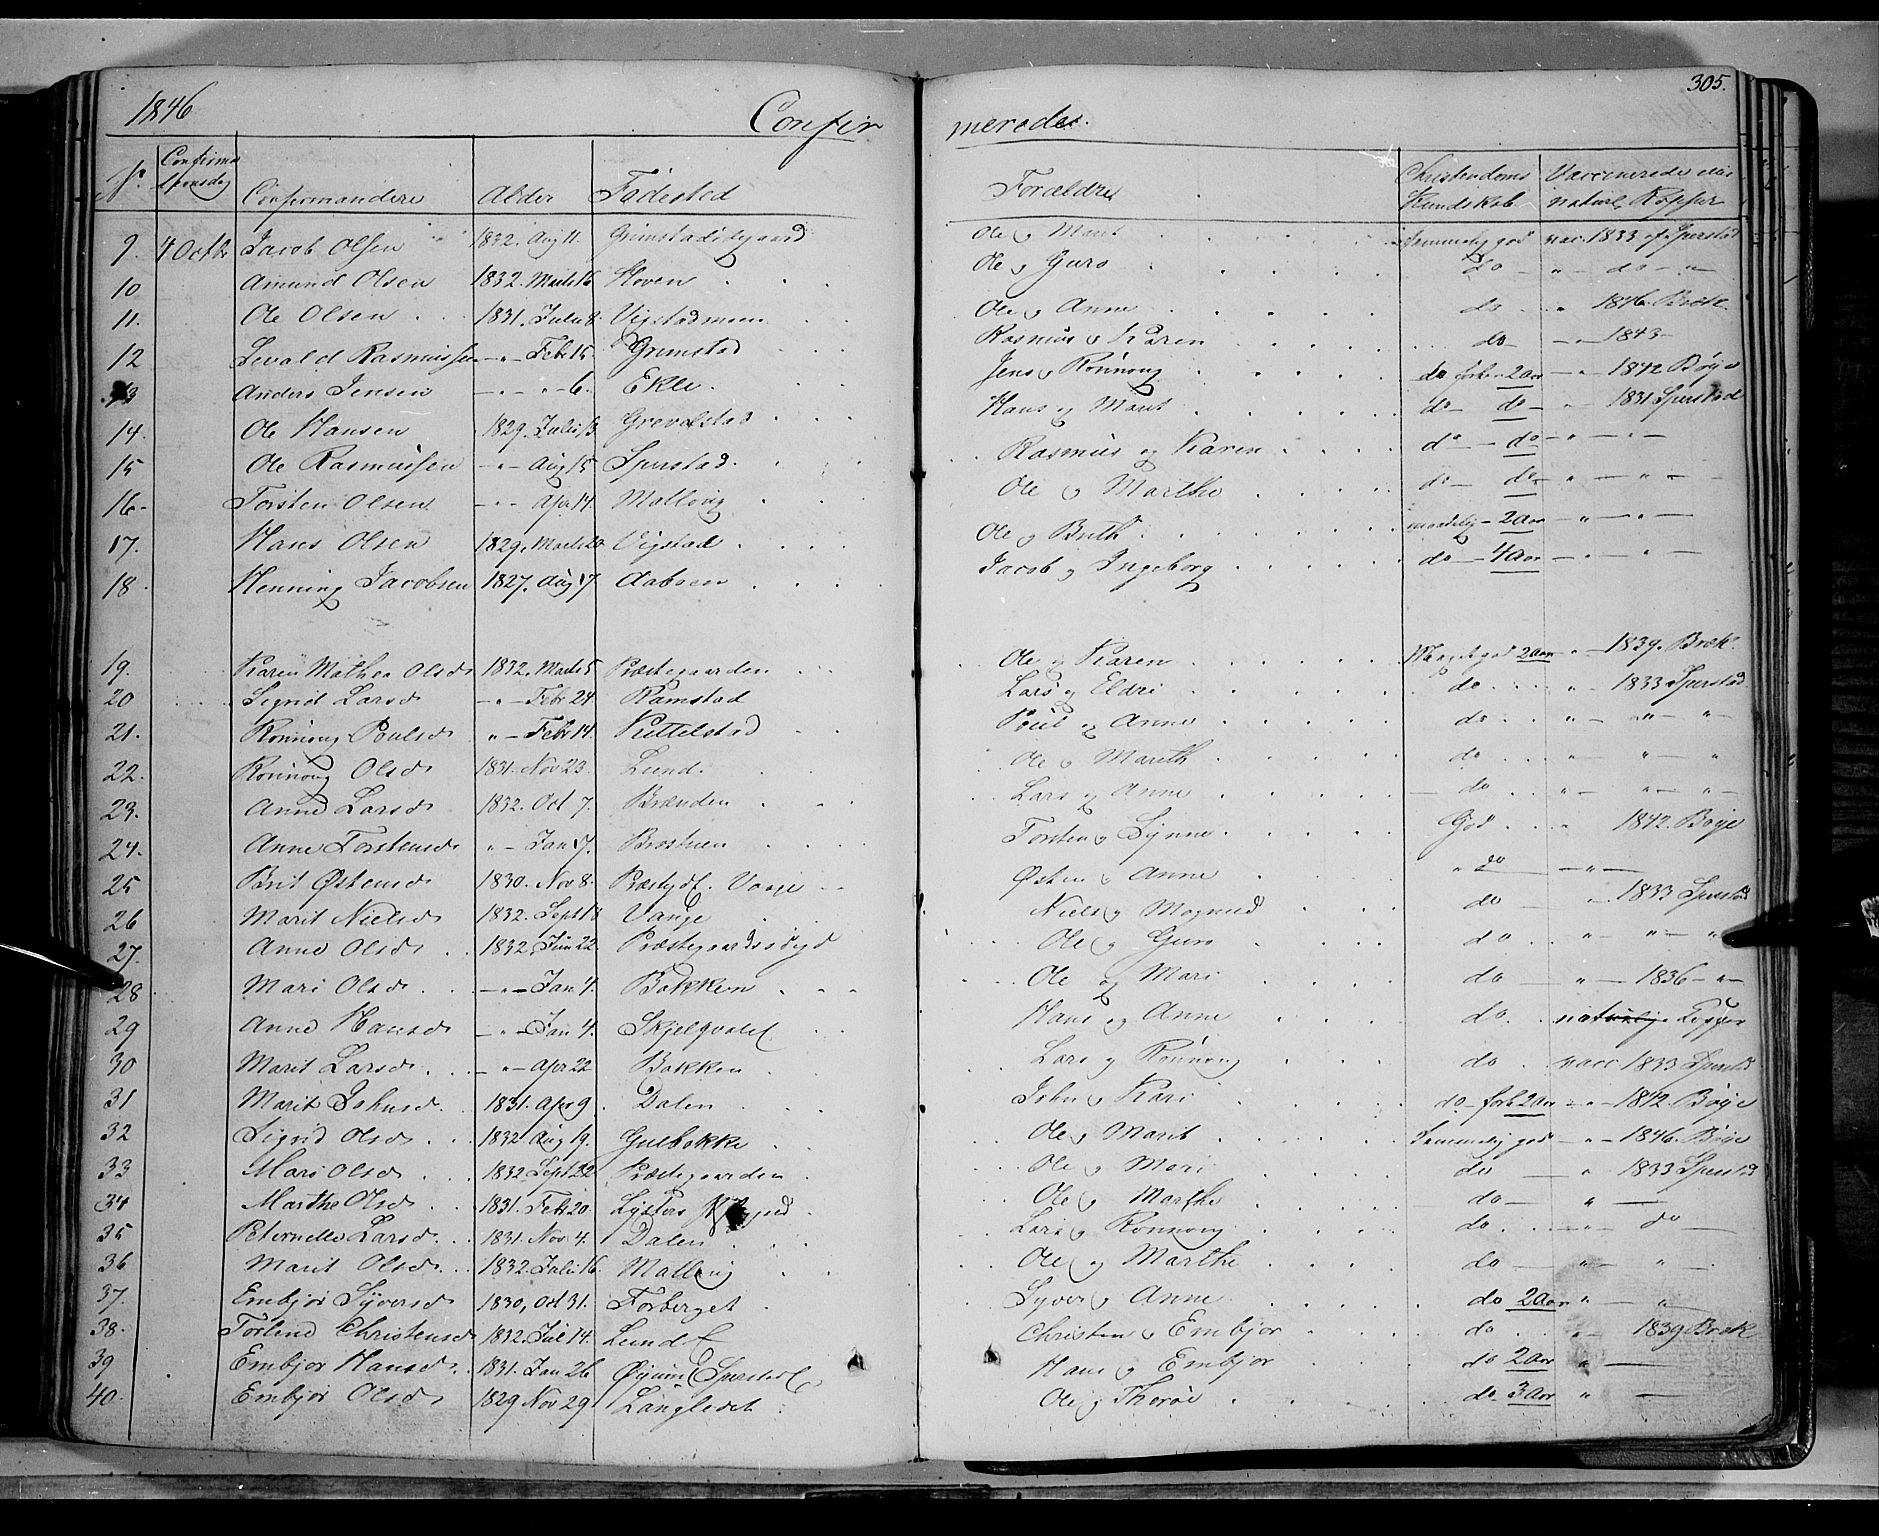 305.
1846 Confir merede.
No. Confirmations dag Confirmandere Alder Fødested Forældre Christendoms Kundskab Vaccinerede eller naturl. Kopper
9. 4 Octbr Jacob Olsen 1832. Aug 11. Grimstadøigaard Ole og Marit Temmelig god vac. 1833 af Sperstad
10 Amund Olsen 1832. Marts 16 Hoven Ole og Guro do " do "
11. Ole Olsen 1831. Julii 8. Vigstadmoen Ole og Anne do " 1846. Bræk
12 Sevald Rasmussen " Febr 15. Grimstad Rasmus og Karen do " 1843
13 Anders Jensen " " 6. Ekle Jens og Rønnoug do forhen 2 Aar " 1842 Bøye
14. Ole Hansen 1829. Julii 13. Grevolstad Hans og Marit do do " 1831 Sperstad
15 Ole Rasmussen " Aug 15 Sperstad Rasmus og Karen do do " "
16 Torsten Olsen " Apr 14. Malloug Ole og Marthe do do " " "
17. Hans Olsen 1829. Marts 20 Vigstad Ole og Brith maadelig 2 Aar " " "
18. Henning Jacobsen 1827. Aug 17. Aaboen Jacob og Ingeborg do 4 Aar " "
19. Karen Mathea Olsd. 1832. Marts 5 Præstegaarden Ole og Karen Meget god 2 Aar " 1839. Bræk.
20 Sigrid Larsd. " Febr 24 Ramstad Lars og Eldri do " 1833 Sperstad
21. Rønnoug Poulsd. " Febr 14. Kittelstad Poul og Anne do " " "
22. Rønnoug Olsd. 1831. Nov 23. Lund Ole og Marith do " " "
23. Anne Larsd. 1832. Oct 7. Brænden Lars og Anne do " " "
24. Anne Torstensd. " Jan 17. Brostuen Torsten og Synne God " 1842. Bøye
25 Brit Østensd. 1830. Nov 8. Præstgdf. Vaage Østen og Anne " do "
26 Marit Nielsd. 1832. Sept 18 Vange Niels og Mognild do " 1833 Sperstad
27. Anne Olsd. 1832. Jun 22. Præstegaardsøygd Ole og Guro do " " "
28 Mari Olsd. " Jan 4. Bakken Ole og Mari do " 1836 "
29 Anne Hansd. " Jan 4. Skjelqvale Hans og Anne do naturlige Kopper
30 Marit Larsd. " Apr 22 Bakken Lars og Rønnoug do vacc 1833 Sperstad
31 Marit Johnsd. 1831. Apr 9. Dalen John og Kari do forh 2 Aar " 1842. Bøye
32 Sigrid Olsd. 1832 Aug 19. Gulbakke Ole og Marit Temmelig god " 1846. Bøye
33 Mari Olsd. 1832 Sept 22 Præstegaarden Ole og Mari do " 1833 Sperstad
34 Marthe Olsd. 1831. Febr 20. Lysters Ole og Marthe do "
35 Peternelle Larsd. 1831. Nov 4. Dalen Lars og Rønnoug do " do
36 Marit Olsd. 1832. Julii 16. Malloug Ole og Marthe do " "
37. Embjør Syversd. 1830, Oct 31. Forberget Syver og Anne do 2 Aar " "
38. Torlend Christensd. 1832. Jul 14. Lund Christen og Embjør do " 1839 Bræk
39 Embjør Hansd. 1831. Jan 26 Øyum Sperstad Hans og Embjør do 2 Aar "
40. Embjør Olsd. 1829 Nov 29 Langledet Ole og Thorøe do 3 Aar "